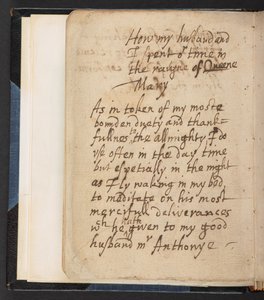 How my husband and
I spent oʳ time in
the raigne of Queene
Mary
As in token of my moste
bounden duety and thank-
fullnes to the allmighty I do
use often in the day time
but espetially in the night
as I ly waking in my bed
to meditate on his most
mercifull deliverances
wᶜʰ he hath given to my good
husband mʳ Anthonye